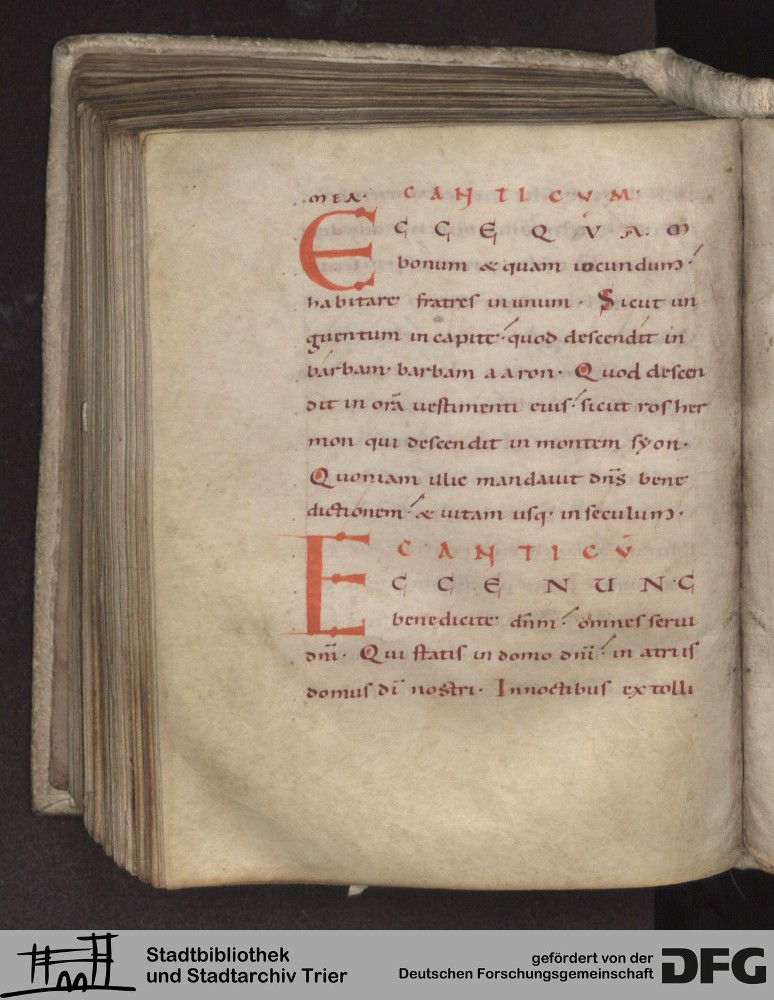 MEA· CANTICUM·
ECCE QUAM
bonum & quam iocundum·
habitare fratres in unum · Sicut un
guentum in capite· quod descendit in
barbam· barbam aaron· Quod descen
dit in orā uestimenti eius· sicut ros her
mon qui descendit in montem syon·
Quoniam illic mandauit dn̄s bene
dictionem· & uitam usq· in seculum·
CANTICŪ
ECCE NUNC
benedicite dn̄m· omnes serui
dn̄i· Qui statis in domo dn̄i· in atriis
domus dī nostri· In noctibus extolli
Stadtbibliothek
und Stadtarchiv Trier
gefördert von der
Deutschen Forschungsgemeinschaft
DFG